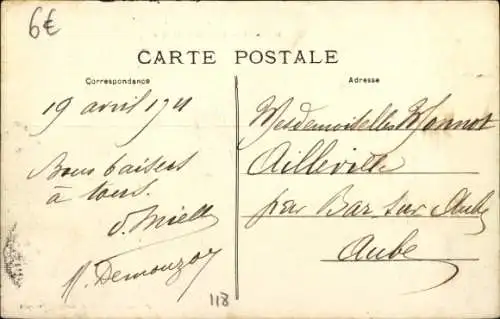 6€
CARTE POSTALE
Correspondance
Adresse
19 avril 1911
Bons baisers
à tous.
Mesdemoiselles Monnot
Ailleville
par Bar sur Aube
Aube
118